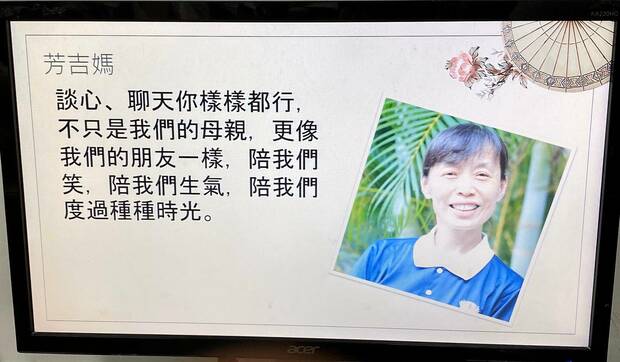 芳吉媽
談心、聊天你樣樣都行，
不只是我們的母親，更像
我們的朋友一樣，陪我們
笑，陪我們生氣，陪我們
度過種種時光。
acer